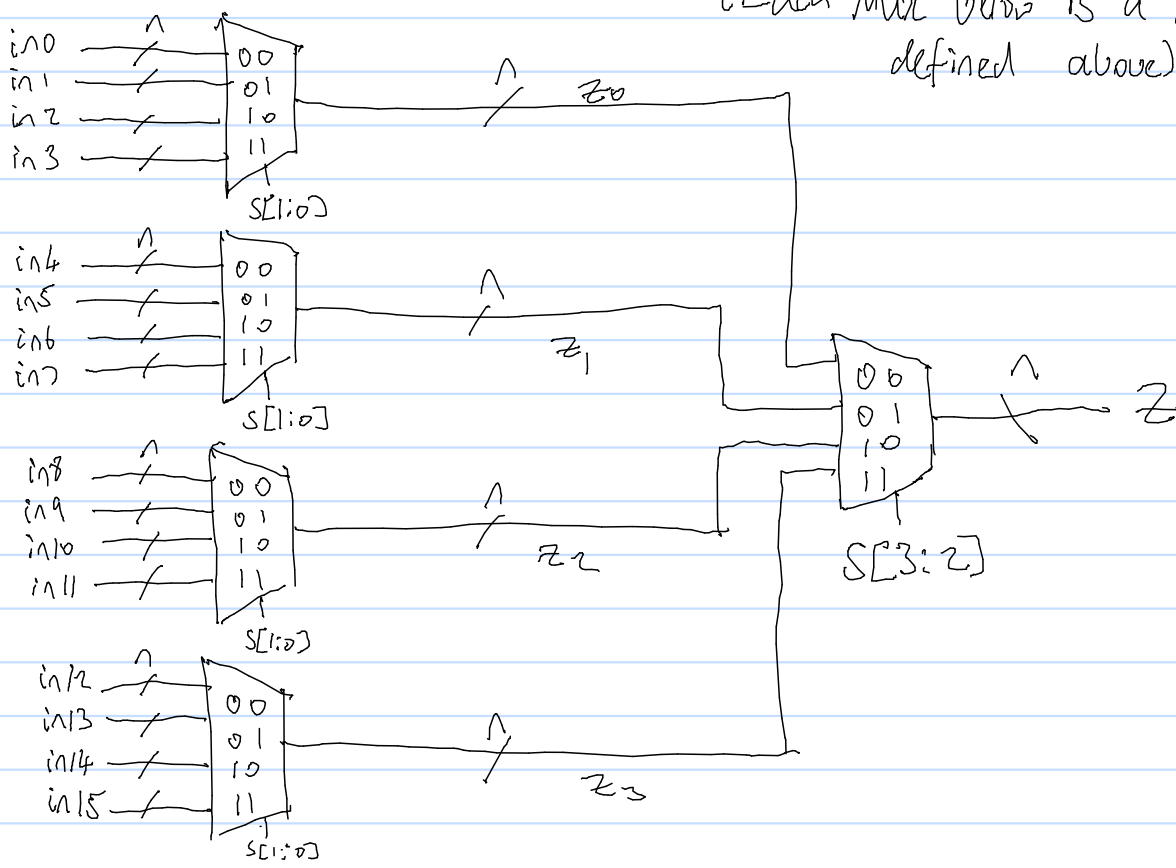 (Each Mux below is a
defined above)
in0
in1
in2
in3
n
00
01
10
11
S[1:0]
n
Z0
in4
in5
in6
in7
n
00
01
10
11
S[1:0]
n
Z1
in8
in9
in10
in11
n
00
01
10
11
S[1:0]
n
Z2
in12
in13
in14
in15
n
00
01
10
11
S[1:0]
n
Z3
00
01
10
11
S[3:2]
n
Z